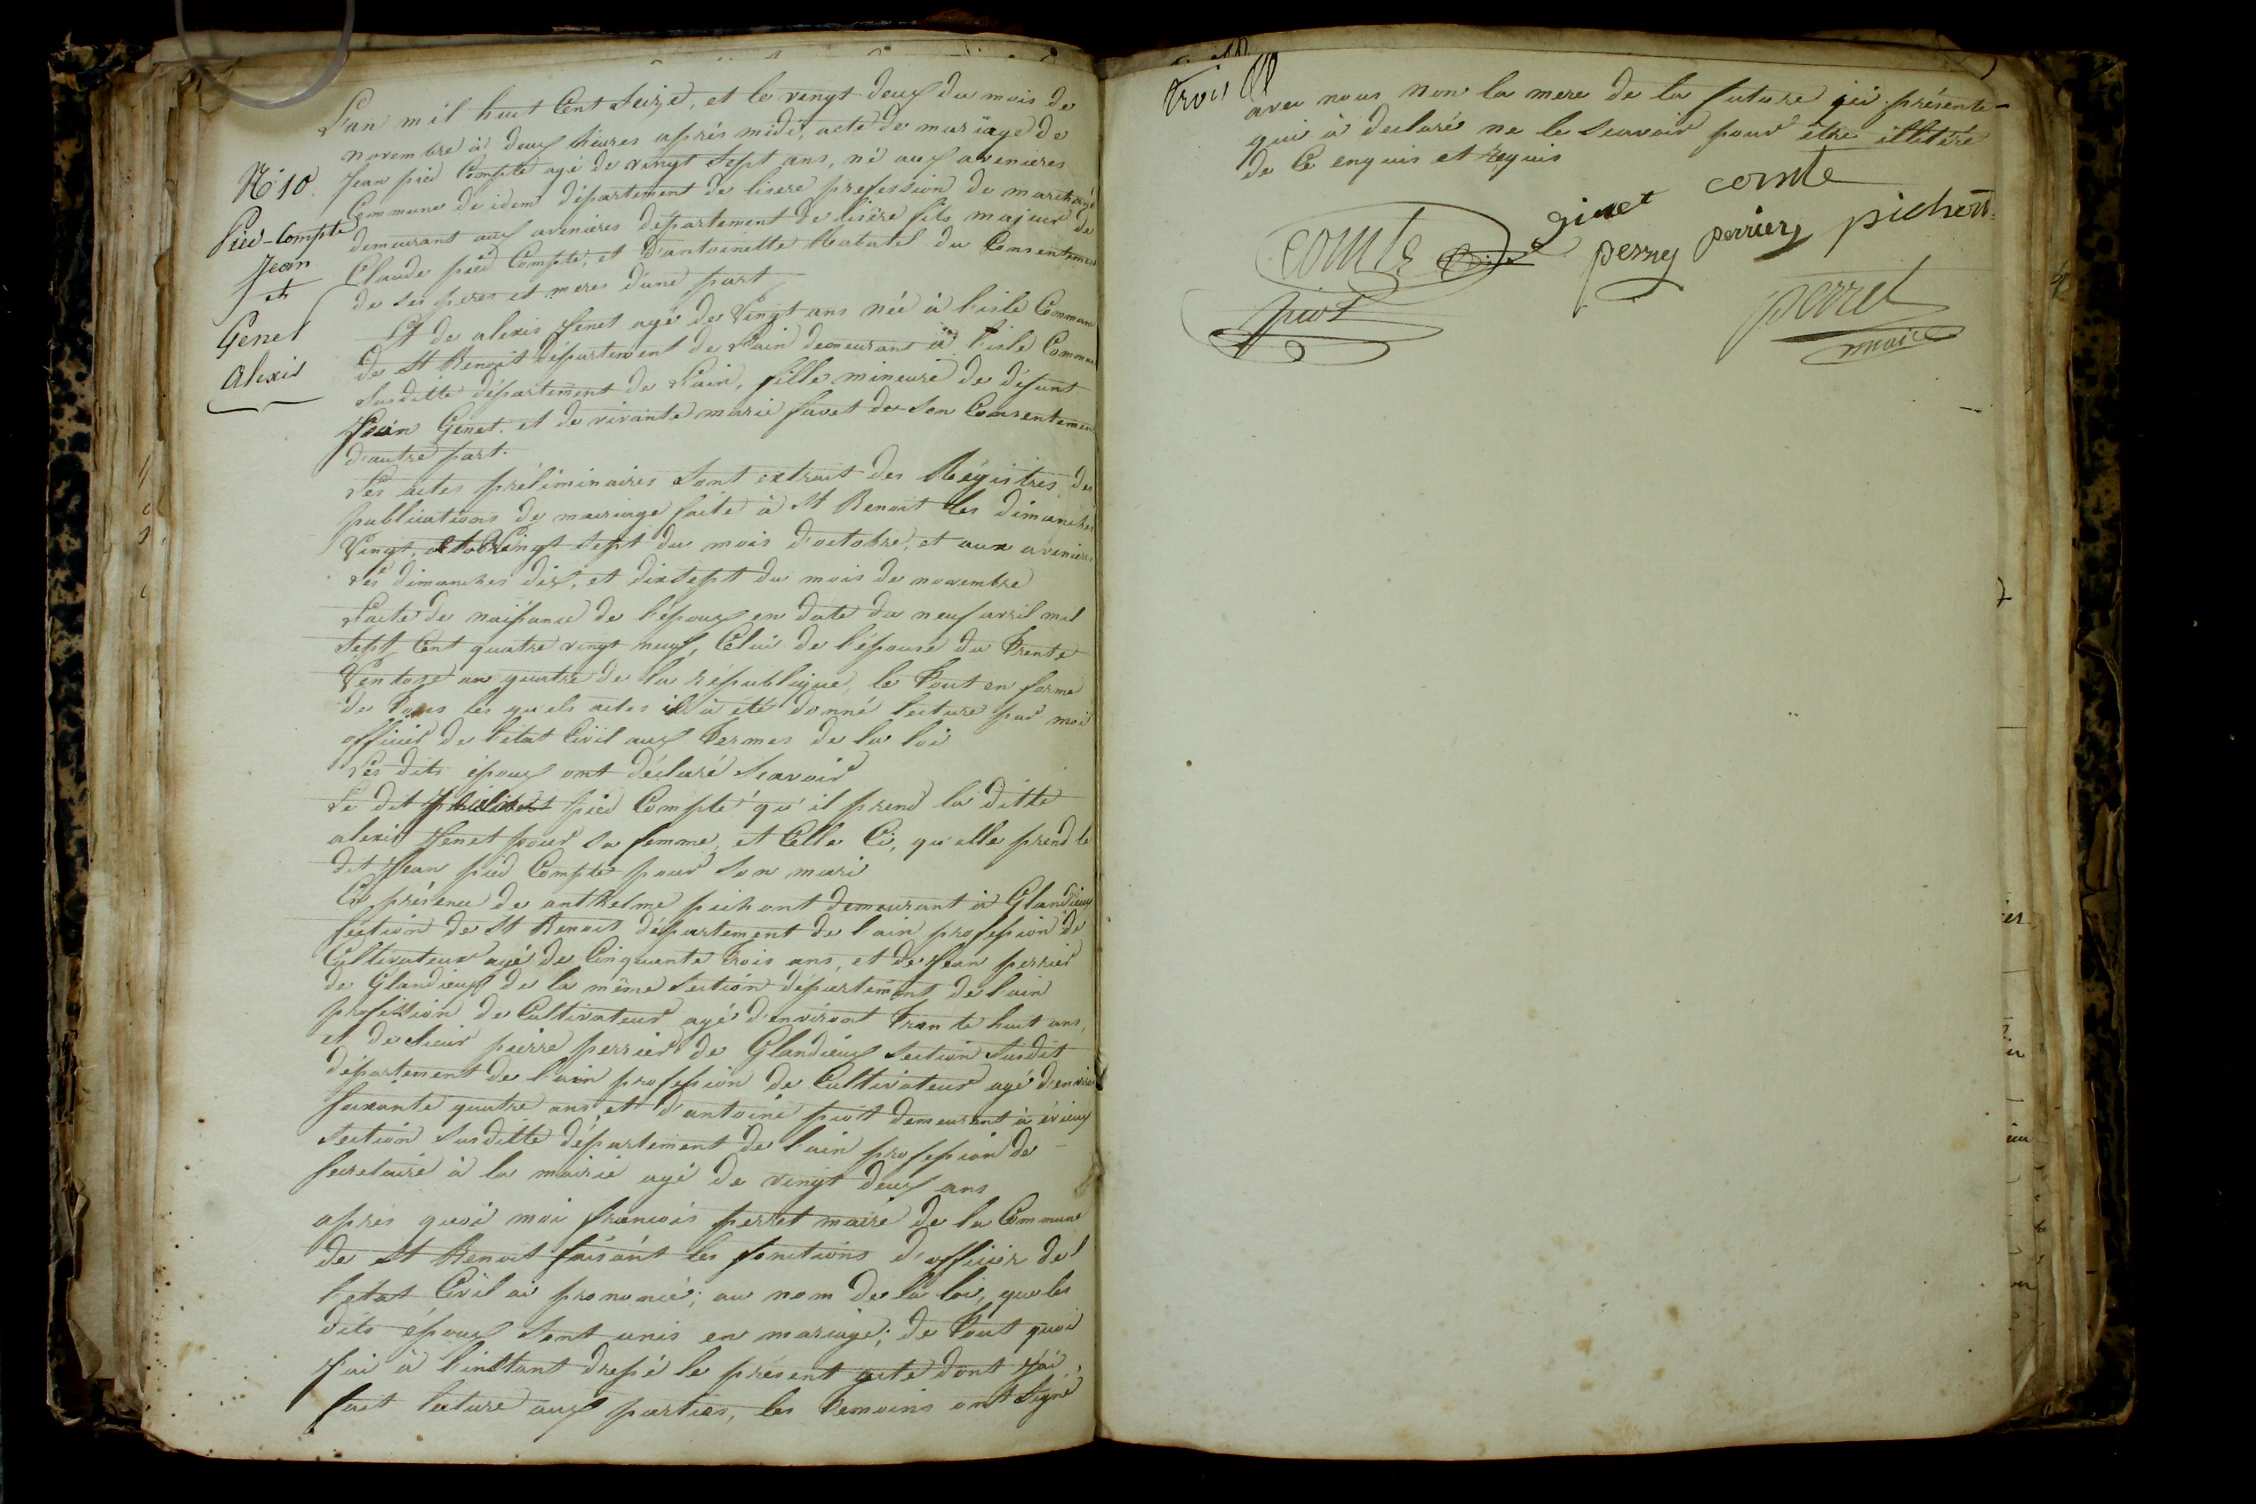 L'an mil huit Cent Seize, et le vingt deux du mois de
novembre à deux heures après midi, acte de mariage de
Jean pied Compte agé de vingt Sept ans, né aux avenieres
Commune de idem département de lisere profession de marchand
demeurant aux avenieres département de lisère fils majeur de
Claude pied Compte, et d'antoinette du Consentement
de Ses peres et meres d'une part
N° 10
Pied-Compte
Jean
et
Genet
Alexis
Et de alexis Jenet agé de Vingt ans née à l'isle Commune
de St Benoit département de l'ain demeurant à l'isle Commune
Susditte département de L'ain, fille mineure de défunt
Jean Genet et de vivante marie favet de Son Consentement
d'autre part.
Les actes préliminaires Sont extrait des Régistres des
publications de mariage faite à St Benoit les dimanches
Vingt, vingt Sept du mois d'octobre, et aux avenieres
Les dimanches dix, et dixsept du mois de novembre
L'acte de naissance de l'époux en date du neuf avril mil
Sept Cent quatre vingt neuf, Celui de l'épouse du Trente
Ventose an quatre de la république, le Tout en forme
de Tous les quels actes il à été donné lecture par moi
officier de l'état Civil aux Termes de la loi
Les dits époux ont déclaré Scavoir
Le dit pied Compte qu'il prend la ditte
alexis Jenet pour Sa femme, et Celle Ci, qu'elle prend le
dit Jean pied Compte pour Son mari
En présence de anthelme pichont demeurant à Glandieux
Section de St Benoit département de l'ain profession de
Cultivateur agé de Cinquante Trois ans, et de Jean perrier
de Glandieux de la même Section département de l'ain
profission de Cultivateur agé d'environt Trante huit ans,
et de Sieur pierre perrier de Glandieux Section Susdit
département de l'ain profession de Cultivateur agé d'environ
Soixante quatre ans, et d'antoine piot demeurant à évieux
Section Susditte département de l'ain profession de
Secretaire à la mairie agé de vingt deux ans
après quoi moi francois perret maire de la Commune
de St Benoit faisant les fonctions d'officier de
l'etat Civil ai prononcé; au nom de la loi, que les
dits époux Sont unis en mariage; de Tout quoi
J'ai à l'instant dressé le présent acte dont J'ai
fait lecture aux parties, les Temoins ont Signé
trois
avec nous non la mere de la future ici présente
qui à declaré ne le Scavoir pour être illitéré
de Ce enquis et Requis
ginet comte
comte perrey perrier pichont
piot perret
maire